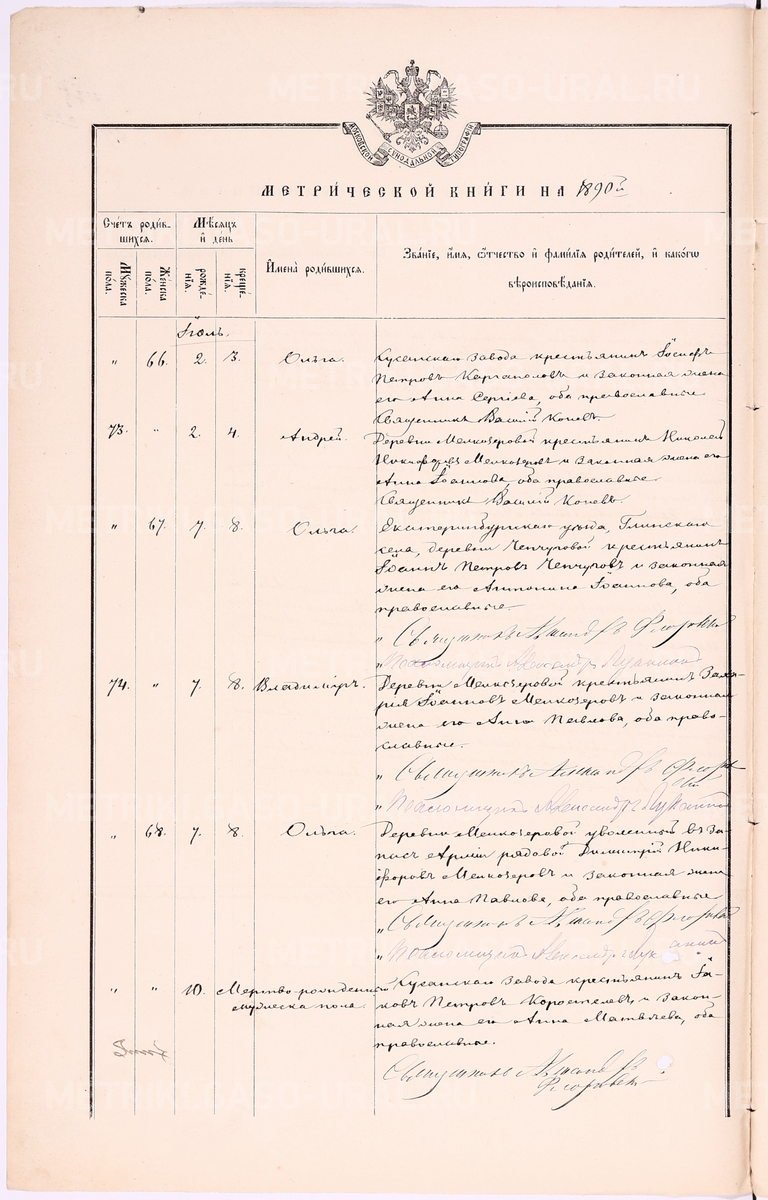 МОСКОВСКОЙ СѴНОДАЛЬНОЙ ТѴПОГРАФІИ
МЕТРИ́ЧЕСКОЙ КНИ́ГИ НА 1890й
Сче́тъ роди́в-
шихся.
Мѣ́сяцъ
и҆ день
И҆мена̀ роди́вшихся.
Зва́ніе, и҆́мя, ѻ҆́тчество и҆ фами́лія роди́телей, и҆ како́гѡ
вѣроисповѣ́данія.
Му́жеска
по́ла.
Же́нска
по́ла.
рожде́-
нія.
креще́-
нія.
Іюль.
" 66. 2. 3. Ольга. завода крестьянинъ Іосифъ
Петровъ Каргаполовъ и законная жена
его Анна Сергіева, оба православные
Священникъ Василій Коневъ.
73. " 2. 4. Андрей. Деревни Мелкозеровой крестьянинъ Николай
Никифоровъ Мелкозеровъ и законная жена его
Анна Іоаннова, оба православные.
Священникъ Василій Коневъ.
" 67. 7. 8. Ольга. Екатеринбургскаго уѣзда, Глинскаго
села, деревни Чепчуговой крестьянинъ
Іоаннъ Петровъ Чепчуговъ и законная
жена его Антонина Іоаннова, оба
православные.
" Священникъ Александръ
" Псаломщикъ Александръ
74. " 7. 8. Владиміръ. Деревни Мелкозеровой крестьянинъ Заха-
рія Іоанновъ Мелкозеровъ и законная
жена его Анна Павлова, оба право-
славные.
" Священникъ Александръ
" Псаломщикъ Александръ
" 68. 7. 8. Ольга. Деревни Мелкозеровой уволенный въ за-
пасъ Арміи рядовой Димитрій Ники-
форовъ Мелкозеровъ и законная жена
его Анна Павлова, оба православные
" Священникъ Александръ
" Псаломщикъ Александръ
" " 10. Мертво-рожденный завода крестьянинъ Іа-
мужеска пола. ковъ Петровъ Коростелевъ и закон-
ная жена его Анна Матвѣева, оба
православные.
Священникъ Александръ